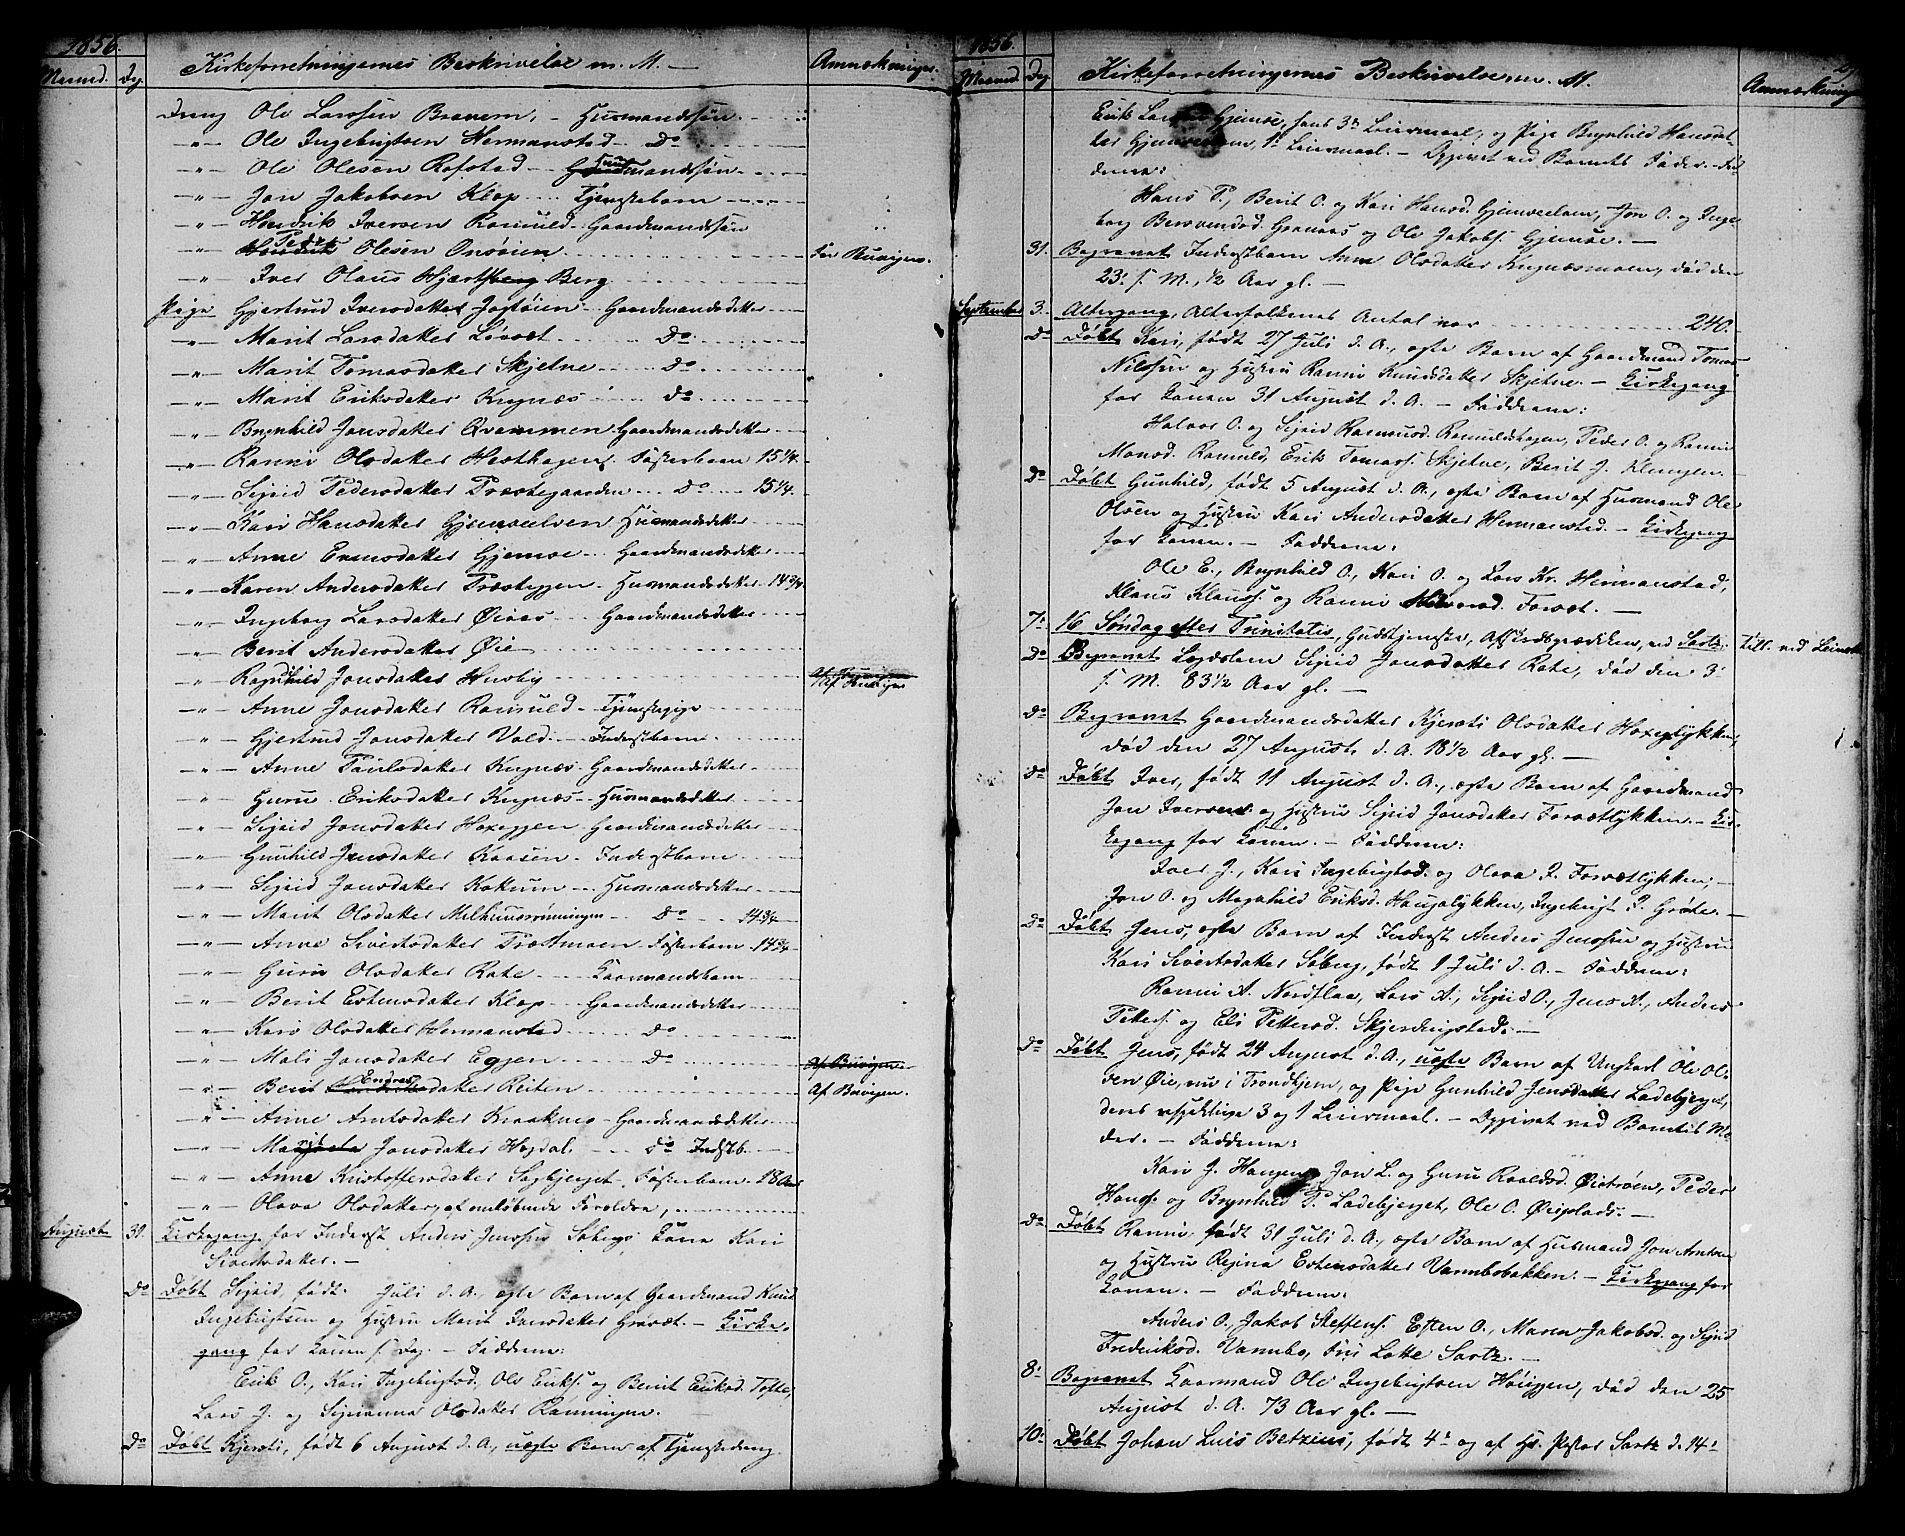 1856.
Maaned. Dg. Kirkeforretningernes Beskrivelse m. M. — Anmærkninger.
Dreng Ole Larssen Bravem, — Husmandssøn.
— " — Ole Ingebrigtsen Hermanstad — Do
— " — Ole Olesen Rofstad — Husmandssøn
— " — Jon Jakobsen Klop — Tjenestebarn
— " — Hendrik Iversen Romuld — Gaardmandssøn
— " — Peder Olesen Onsøien for Buvigen.
— " — Iver Olaus Hjortsberg Berg
Pige Gjertrud Iversdatter Jogtøien — Gaardmandsdatter
— " — Marit Larsdatter Løvset Do
— " — Marit Tomasdatter Skjetne Do
— " — Marit Eriksdatter Kregnæs Do
— " — Brynhild Jonsdatter Qvammen Gaardmandsdatter
— " — Ranni Olsdatter Hesthagen Fosterbarn 15 1/4.
— " — Sigrid Pedersdatter Præstegaarden Do 15 1/4.
— " — Kari Hansdatter Gjemveelven Husmandsdatter
— " — Anne Evensdatter Gjemse Gaardmandsdatter
— " — Karen Andersdatter Træteggen — Husmandsdatter 14 3/4
— " — Ingeborg Larsdatter Øiaas — Gaardmandsdatter
— " — Berit Andersdatter Øie
— " — Ragnhild Jonsdatter Husby Af Buvigen
— " — Anne Jonsdatter Romuld — Tjenestepige
— " — Gjertrud Jonsdatter Vold — Inderstbarn
— " — Anne Paulsdatter Kregnæs Gaardmandsdatter
— " — Guru Eriksdatter Kregnæs Husmandsdatter
— " — Sigrid Jonsdatter Hoxeggen Gaardmandsdatter
— " — Gunhild Jensdatter Kaasen — Inderstbarn
— " — Sigrid Jonsdatter Kokum — Husmandsdatter
— " — Marit Olsdatter Melhusrønningen Do 14 3/4
— " — Anne Sivertsdatter Trøttmoen Fosterbarn 14 3/4
— " — Guru Olsdatter Rate — Kaarmandsbarn
— " — Berit Estensdatter Klop — Gaardmandsdatter
— " — Kari Olsdatter Hermanstad Do
— " — Mali Jonsdatter Eggen Do Af Buvigen
— " — Berit Endresdatter Reiten Af Buvigen.
— " — Anne Arntsdatter Kraaknes — Gaardmandsdatter
— " — Marit Jonsdatter Hojdal Do Indstb.
— " — Anne Kristoffersdatter Sagbjerget, Fosterbarn 18 Aar
— " — Olava Olsdatter, af omløbende Foreldre,
August 31. Kirkegang for Inderst Anders Jenssen Søbergs Kone Kari
Sivertsdatter. —
Do Døbt Sigrid, født Juli d. A., ægte Barn af Gaardmand Knud
Ingebrigtsen og Hustru Marit Iversdatter Gravset. — Kirke-
gang for Konen s. Dag. — Faddrene:
Erik O., Kari Ingebrigtsd. Ole Eriks. og Berit Eriksd. Tofte,
Lars J. og Sirianna Olsdatter Ranningen.
Do Døbt Kjersti, født 6 August d. A., uægte Barn af Tjenestedreng
1856.
Maaned Dg Kirkeforretningernes Beskrivelse m. M. Anmærkninger
Erik Larssen Gjemse, hans 3de Leiermaal, og Pige Brynhild Hansdat-
ter Gjemveelven, 1st Leiermaal. — Opgivet ved Barnets Fader. Fad-
derne:
Hans P., Berit O. og Kari Hansd. Gjemveelven, Jon O. og Inge-
borg Bersvendsd. Granaas og Ole Jakobs. Gjemse. —
31. Begravet Inderstbarn Anne Olsdatter Kregnæsmoen, død den
23. s. M., 1/2 Aar gl. —
September 3. Altergang, Alterfolkenes Antal var 240.
Do Døbt Kari, født 27 Juli d. A., ægte Barn af Gaardmand Tomas
Nilssen og Hustru Ranni Knudsdatter Skjetne. — Kirkegang
for Konen 31 August d. A. — Faddrene:
Halvor O. og Sigrid Rasmusd. Romuldshagen, Peder O. og Ranni
Monsd. Romuld, Erik Tomass. Skjetne, Berit J. Klengen.
Do Døbt Gunhild, født 5 August d. A., ægte Barn af Husmand Ole
Olsen og Hustru Kari Andersdatter Hermanstad. — Kirkegang
for Konen. — Faddrene:
Ole E., Brynhild O., Kari O. og Lars Kr. Hermanstad,
Klaus Klauss. og Ranni Halvorsd. Forset. —
7. 16 Søndag efter Trinitatis, Gudstjeneste, Afskedsprædiken, ved Sartz. till. ved Leinstr
Do Begravet Lægdslem Sigrid Jonsdatter Rate, død den 3.
s. M. 83 1/2 Aar gl. —
Do Begravet Gaardmandsdatter Kjersti Olsdatter Hoxeglykken,
død den 27 August d. A. 18 1/2 Aar gl. —
Do Døbt Iver, født 11 August d. A., ægte Barn af Gaardmand
Jon Iversen og Hustru Sigrid Jonsdatter Forsetlykken. — Kir-
kegang for Konen. — Faddrene:
Iver J., Kari Ingebrigtsd. og Olava I. Forsetlykken, —
Jon O. og Magnhild Eriksd. Haugalykken, Ingebrigt P. Grøte. —
Do Døbt Jens, ægte Barn af Inderst Anders Jenssen og Hustru
Kari Sivertsdatter Søberg, født 1 Juli d. A. — Faddrene:
Ranni A. Nordflaa, Lars A., Sigrid O., Jens A., Anders
Petters. og Eli Pettersd. Skjerdingstad. —
Do Døbt Jens, født 24 August d. A., uægte Barn af Ungkarl Ole Ol-
sen Øie, nu i Trondhjem, og Pige Gunhild Jensdatter Ladebjerget,
deres respektive 3 og 1 Leiermaal. — Opgivet ved Barnets Mo-
der. — Faddrene:
Kari J. Haugen, Jon L. og Guru Roaldsd. Øietrøen, Peder
Hans. og Brynhild P. Ladebjerget, Ole O. Øieplads. —
Do Døbt Ranni, født 31 Juli d. A., ægte Barn af Husmand Jon Arntsen
og Hustru Regina Estensdatter Varmbobakken. — Kirkegang for
Konen. — Faddrene:
Anders O., Jakob Steffens. Esten O., Maren Jakobsd. og Sigrid
Frederiksd. Varmbo, Frk Lotte Sartz. —
8. Begravet Kaarmand Ole Ingebrigtsen Høieggen, død den 25
August d. A. 73 Aar gl. —
10. Døbt Johan Luis Betzius, født 4. og af Hr. Pastor Sartz d. 14.